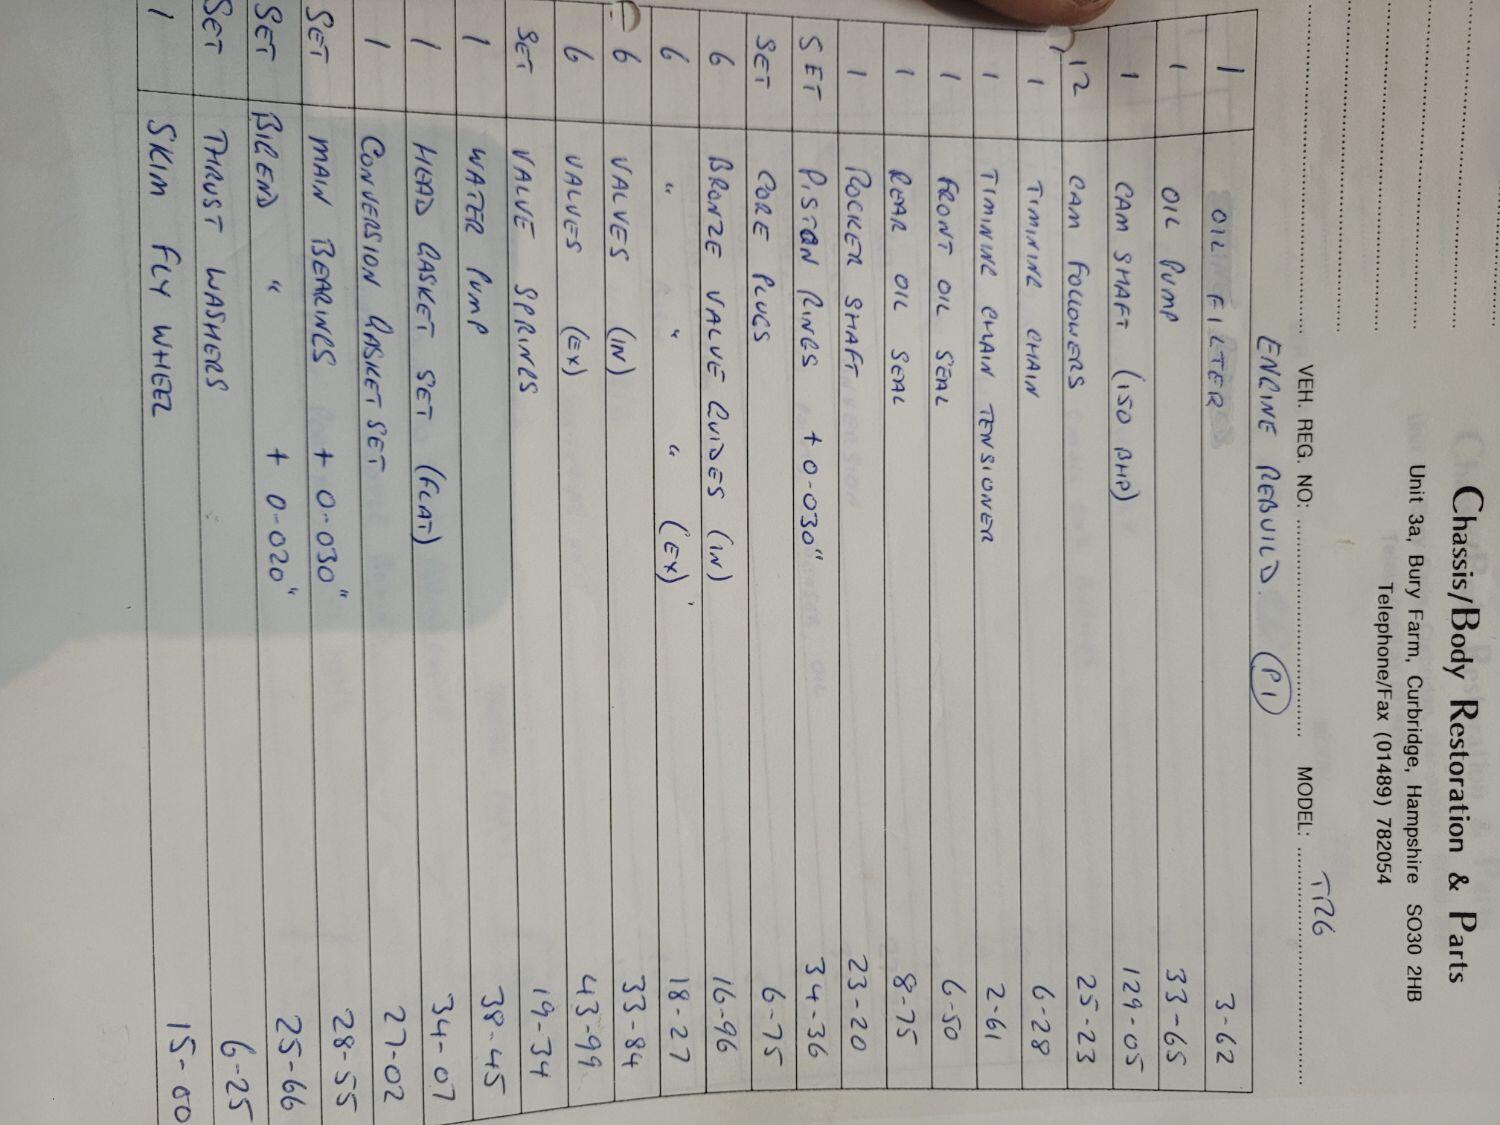 Chassis/Body Restoration & Parts
Unit 3a, Bury Farm, Curbridge, Hampshire SO30 2HB
Telephone/Fax (01489) 782054
VEH. REG. NO: MODEL: TR6
ENGINE REBUILD. P1
1 OIL FILTER 3-62
1 OIL PUMP 33-65
1 CAM SHAFT (150 BHP) 129-05
12 CAM FOLLOWERS 25-23
1 TIMING CHAIN 6-28
1 TIMING CHAIN TENSIONER 2-61
1 FRONT OIL SEAL 6-50
1 REAR OIL SEAL 8-75
1 ROCKER SHAFT 23-20
SET PISTON RINGS + 0-030" 34-36
SET CORE PLUGS 6-75
6 BRONZE VALVE GUIDES (IN) 16-96
6 " " " (EX) 18-27
6 VALVES (IN) 33-84
6 VALVES (EX) 43-99
SET VALVE SPRINGS 19-34
1 WATER PUMP 38-45
1 HEAD GASKET SET (FLAT) 34-07
1 CONVERSION GASKET SET 27-02
SET MAIN BEARINGS + 0-030" 28-55
SET BIGEND " + 0-020" 25-66
SET THRUST WASHERS 6-25
1 SKIM FLY WHEEL 15-00